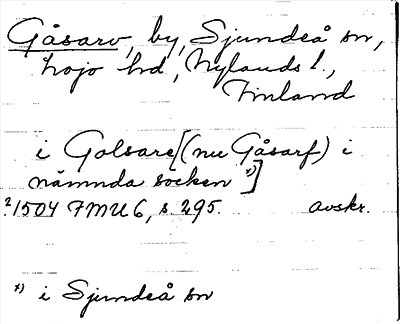 Gåsarv, by, Sjundeå sn,
Lojo hd, Nylands l.,
Finland
i Golsare [(nu Gåsarf) i
nämnda socken *)]
?1504 FMU 6, s. 295. avskr.
*) i Sjundeå sn